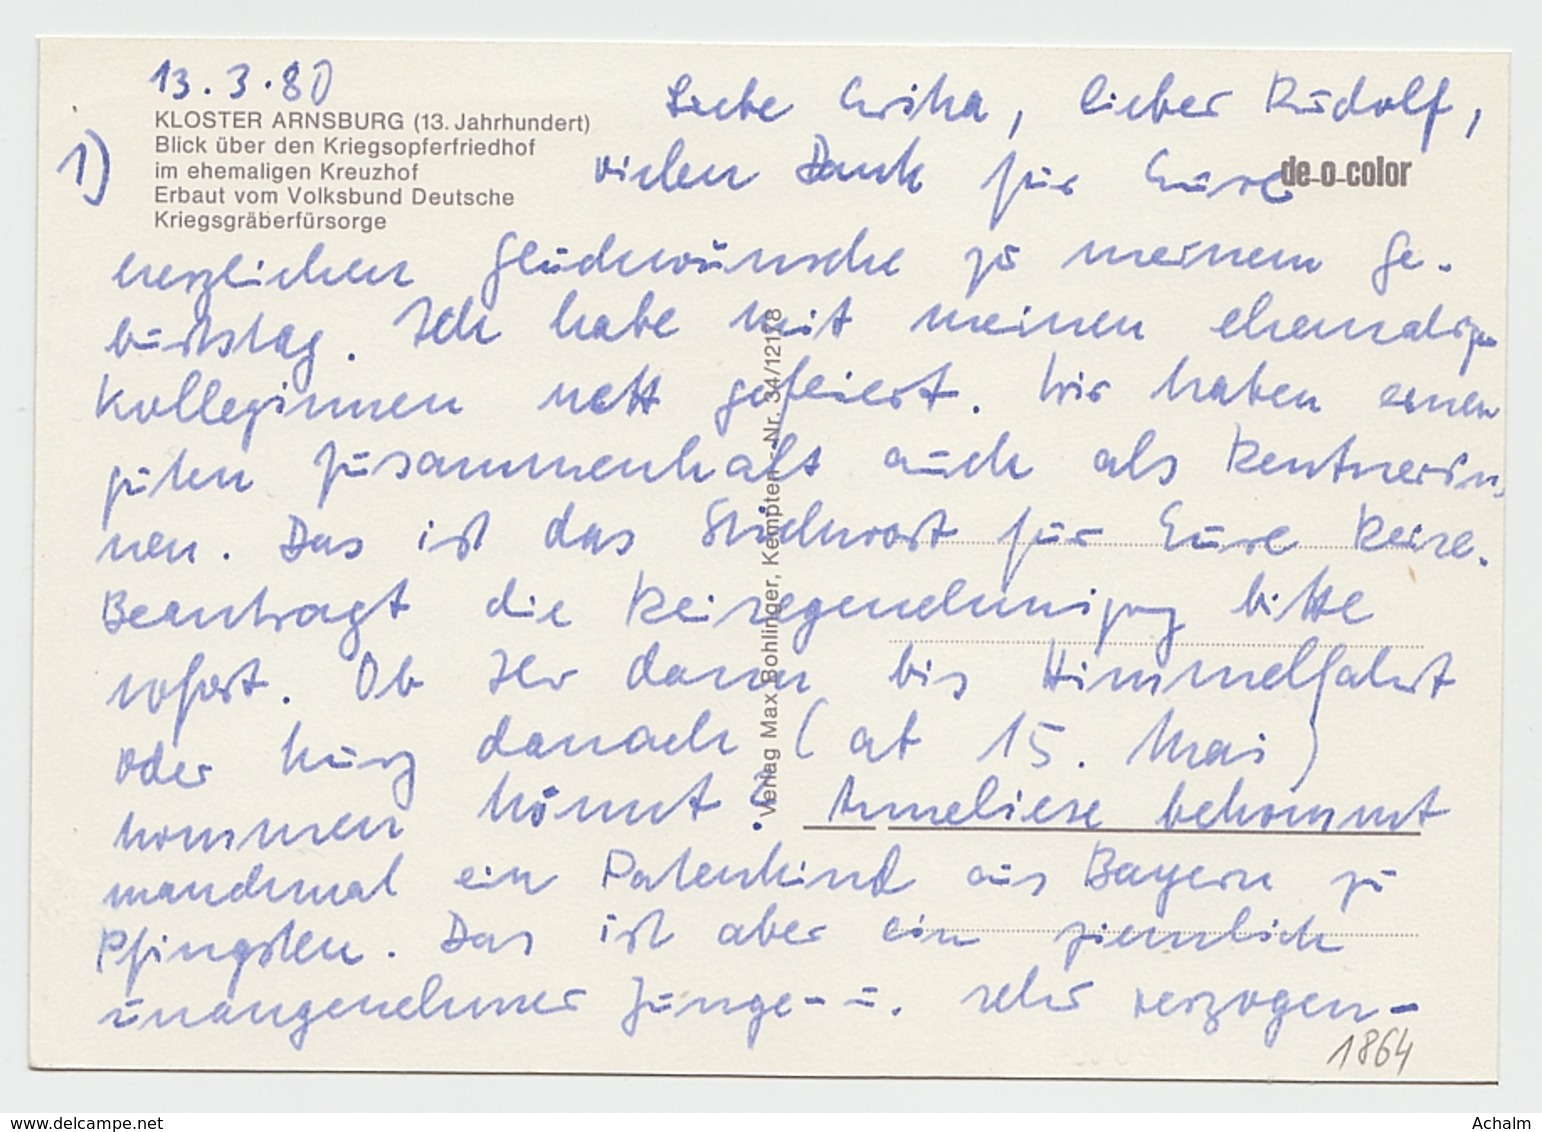 13.3.80
KLOSTER ARNSBURG (13. Jahrhundert)
Blick über den Kriegsopferfriedhof
im ehemaligen Kreuzhof
Erbaut vom Volksbund Deutsche
Kriegsgräberfürsorge
1)
de-o-color
Liebe Erika, lieber Rudolf,
vielen Dank für Eure
herzlichen Glückwünsche zu meinem Ge-
burtstag. Ich habe mit meinen ehemaligen
Kolleginnen nett gefeiert. Wir haben einen
guten Zusammenhalt auch als Rentnerin-
nen. Das ist das Stichwort für Eure Reise.
Beantragt die Reisegenehmigung bitte
sofort. Ob Ihr dann bis Himmelfahrt
oder kurz danach (ab 15. Mai)
kommen könnt? Anneliese bekommt
manchmal ein Patenkind aus Bayern zu
Pfingsten. Das ist aber ein ziemlich
unangenehmer Junge - u. sehr verzogen -
Verlag Max Bohlinger, Kempten - Nr. 34/12178
1864
www.delcampe.net
Achalm